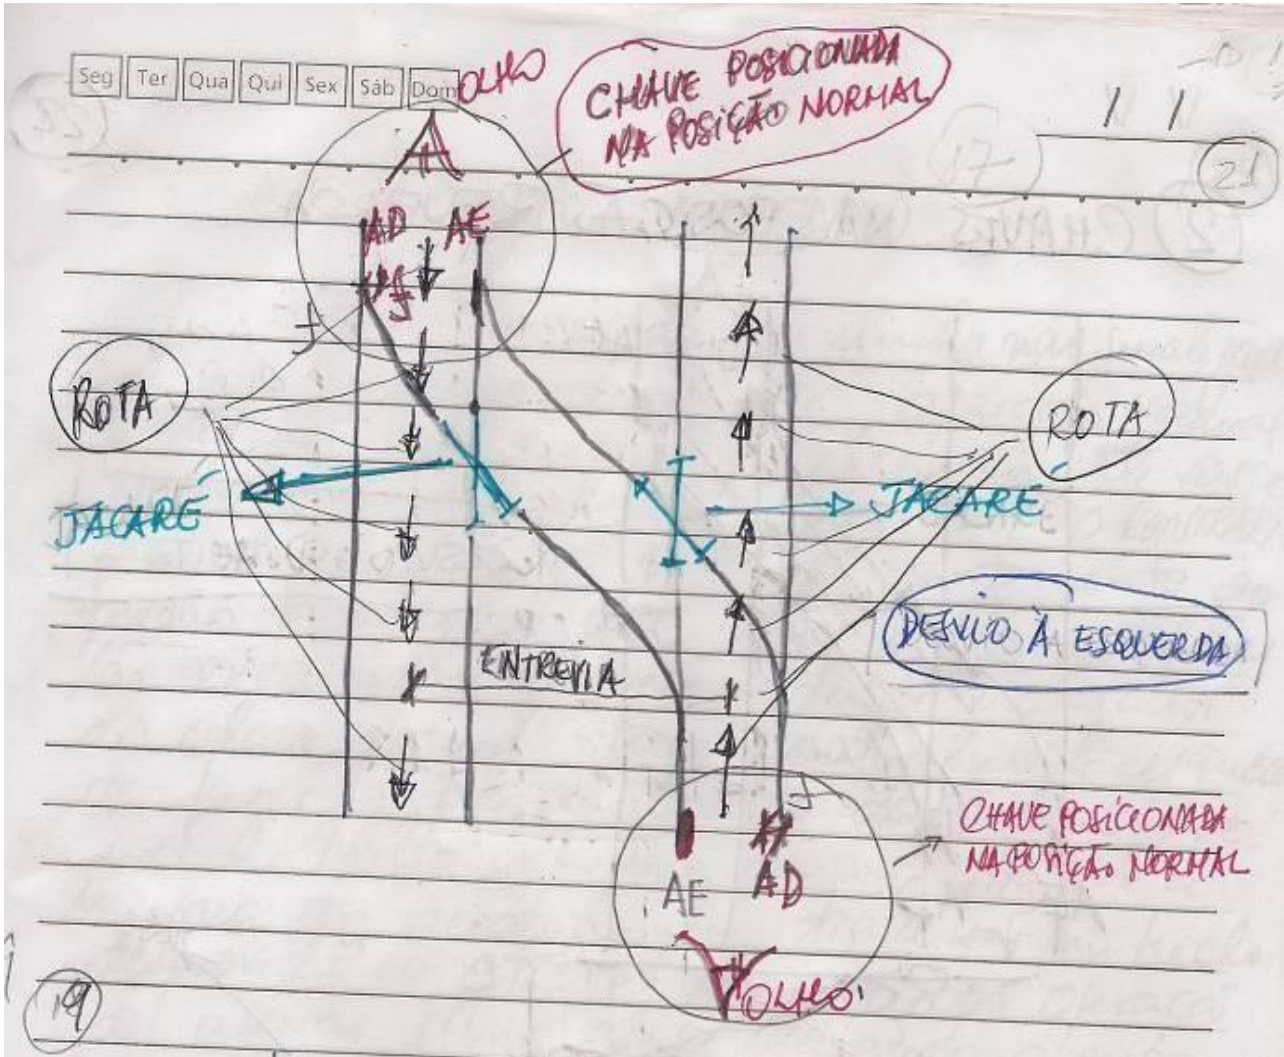 Seg Ter Qua Qui Sex Sáb Dom
OLHO
CHAVE POSICIONADA
NA POSIÇÃO NORMAL
/ /
17
21
2) CHAVES NA
AD AE
ROTA
ROTA
JACARÉ
JACARÉ
DESVIO À ESQUERDA
ENTREVIA
CHAVE POSICIONADA
NA POSIÇÃO NORMAL
AE AD
OLHO
19